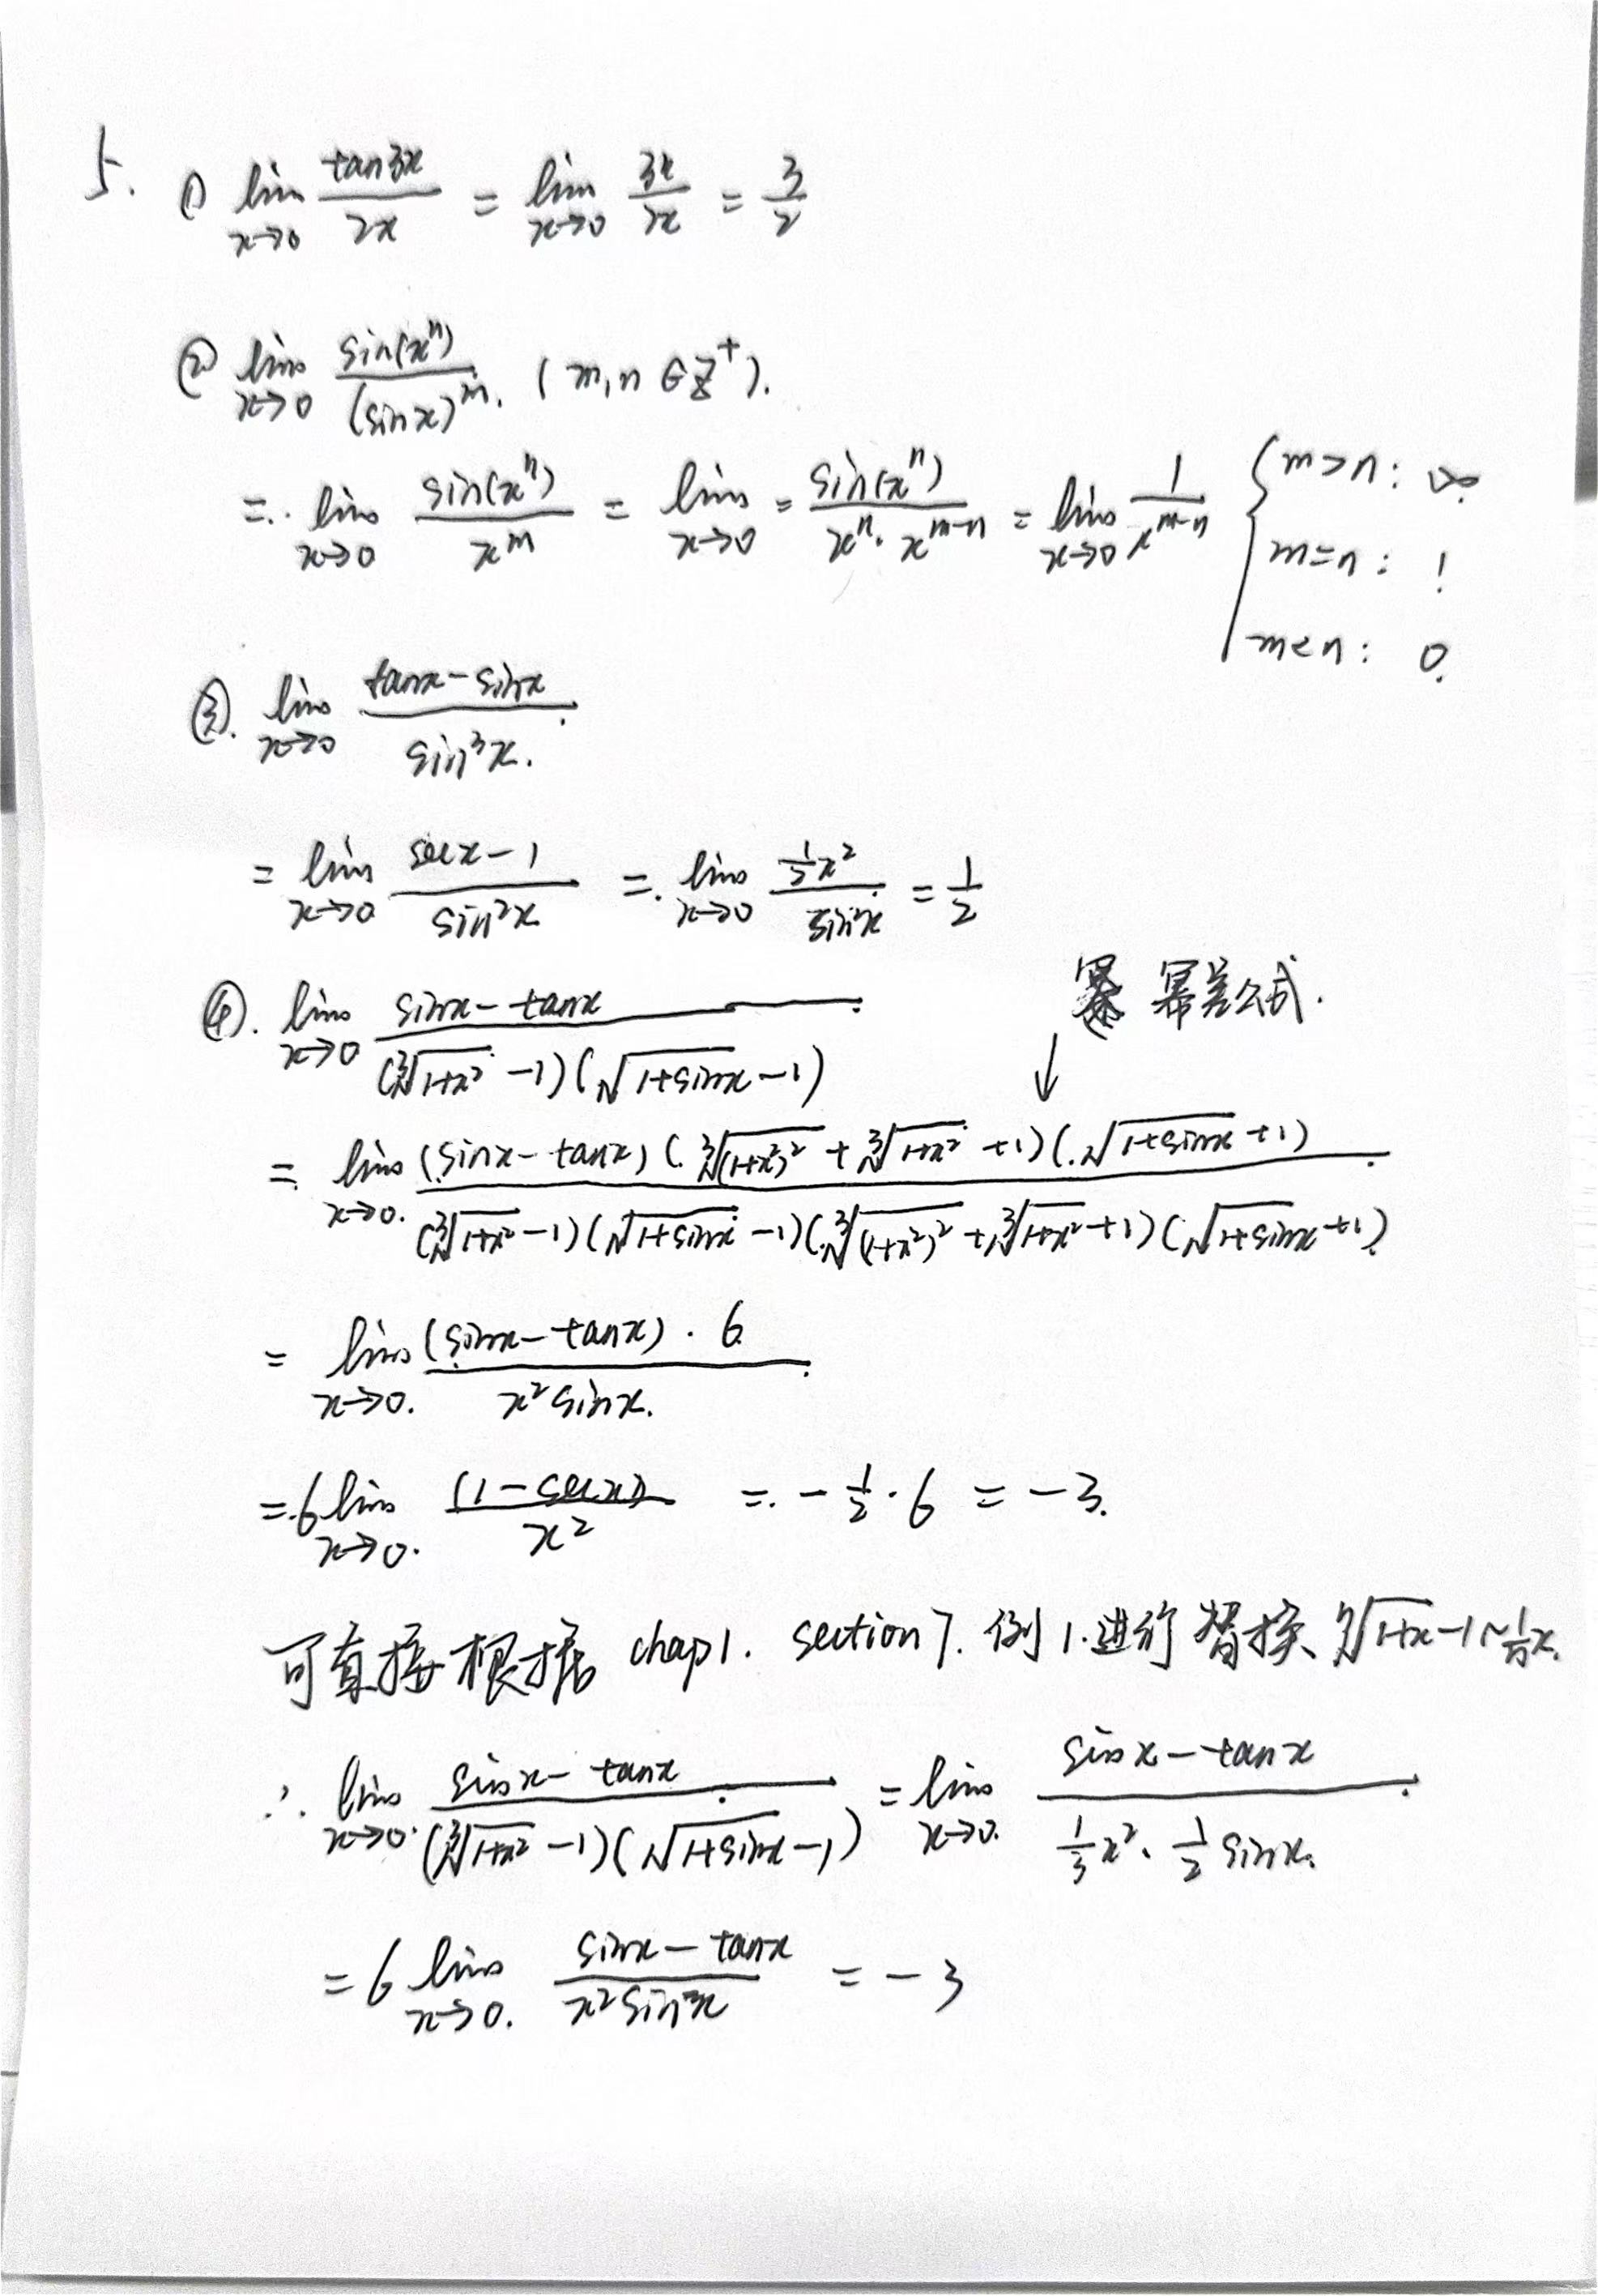 5. ① lim_{x→0} tan3x / 2x = lim_{x→0} 3x / 2x = 3/2
② lim_{x→0} sin(x^n) / (sinx)^m. (m,n∈Z^+).
= lim_{x→0} sin(x^n) / x^m = lim_{x→0} = sin(x^n) / x^n·x^{m-n} = lim_{x→0} 1 / x^{m-n} { m>n: ∞.
m=n: 1
m<n: 0.
③. lim_{x→0} tanx-sinx / sin^3x.
= lim_{x→0} secx-1 / sin^2x = lim_{x→0} ½x^2 / sin^2x = 1/2
④. lim_{x→0} sinx-tanx / (∛(1+x^2) -1)(√(1+sinx) -1)
幂差公式.
↓
= lim_{x→0.} (sinx-tanx)(∛(1+x^2)^2 + ∛(1+x^2) +1)(√(1+sinx) +1) / (∛(1+x^2) -1)(√(1+sinx) -1)(∛(1+x^2)^2 + ∛(1+x^2) +1)(√(1+sinx) +1)
= lim_{x→0.} (sinx-tanx)·6 / x^2 sinx.
= 6 lim_{x→0.} (1-secx) / x^2 = -½·6 = -3.
可直接根据 chap1. section7. 例1.进行替换 ⁿ√(1+x) -1 ~ 1/n x.
∴ lim_{x→0.} sinx-tanx / (∛(1+x^2) -1)(√(1+sinx) -1) = lim_{x→0.} sinx-tanx / ⅓x^2·½sinx.
= 6 lim_{x→0.} sinx-tanx / x^2 sinx = -3